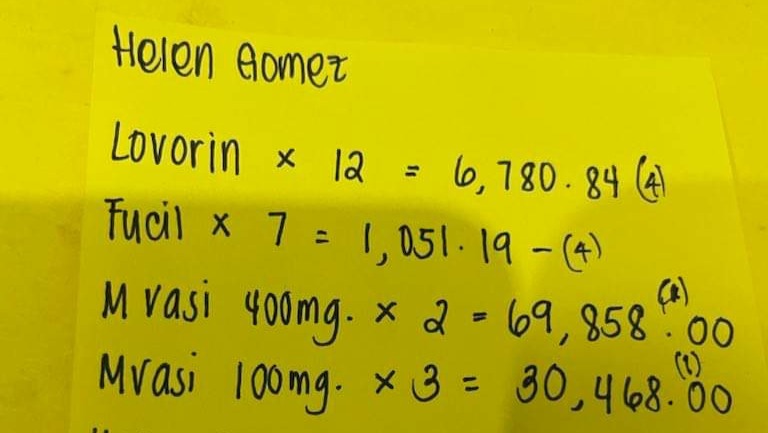 Helen Gomez
Lovorin x 12 = 6,780.84 (4)
Fucil x 7 = 1,051.19 - (4)
Mvasi 400mg. x 2 = 69,858.00
Mvasi 100mg. x 3 = 30,468.00 (1)